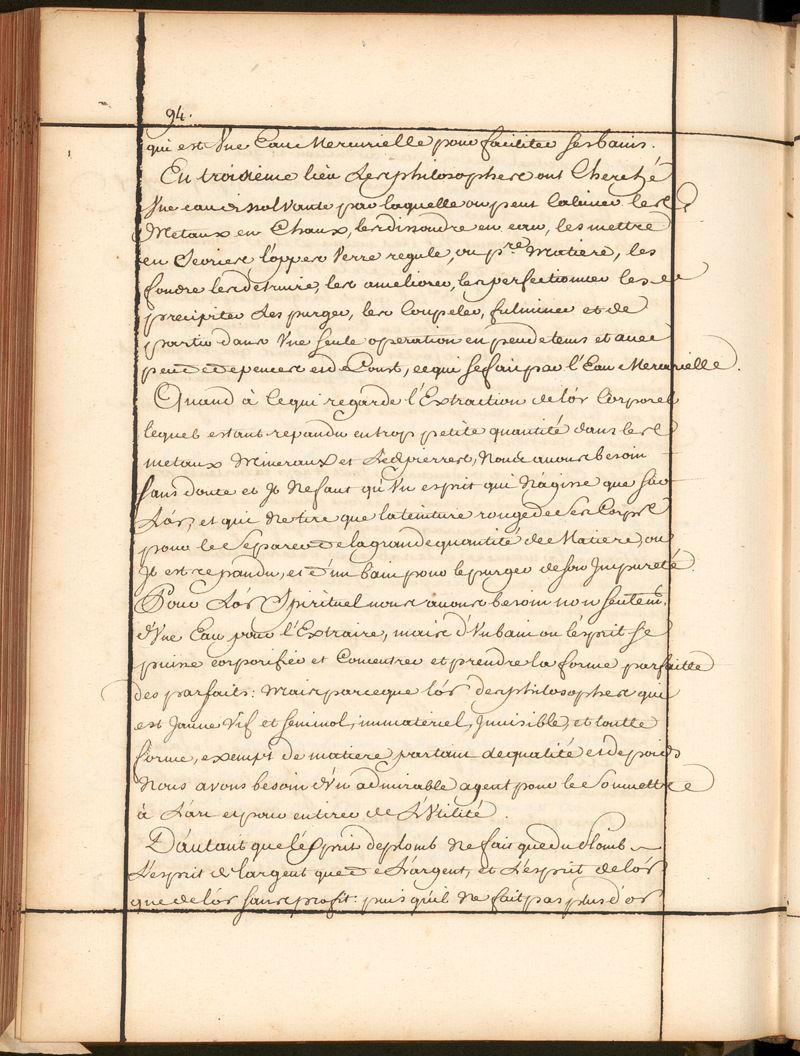 94.
qui est Vne Eau Mercurielle pour faciliter ses bains.
En troisieme lieu Les philosophes ont Cherché
Vne eau dissolvante par laquelle on peut calciner les
Metaux en Chaux, les dissoudre en eau, les mettre
en Scories verre regule, ou pre. Matiere, les
fondre les détruire, les ameliorer, les perfectionner les
precipiter Les purger, les Coupeler, fulminer et de
partir dans Vne seule operation en peu de tems et avec
peu de depences et de Coust, ce qui se fait par l'Eau Mercurielle.
Quand à ce qui regarde l'Extraction de lór Corporel
lequel estant repandu en trop petite quantité dans les
metaux Mineraux et Les pierres, Nous avons besoin
sans doute et Il Ne faut qu'Vn esprit qui N'agisse que sur
L'ór, et qui Ne tire que la teinture rouge de ses Corps
pour le Separer de la grande quantité de Matiere, ou
Il est repandu, et d'un bain pour le purger de son Impureté.
Pour L'ór Spirituel nous avons besoin non seulem.
d'Vne Eau pour l'Extraire, mais d'Vn bain ou l'esprit se
puisse corporifier et Concentrer et prendre la forme parfaitte
des parfaits: Mais parceque lór des philosophes qui
est Jaune Vif et seminal, immateriel, Invisible, et toutte
forme, exempt de matiere partant de qualité et de poids
Nous avons besoin d'Vn admirable agent pour le Soumettre
à L'art et pour en tirer de L'Vtilité.
D'autant que l'ésprit de plomb Ne fait que du Plomb
L'esprit de l'argent que de L'argent, et L'esprit de lór
que de lór sans profit: puis qu'il Ne fait pas plus d'or